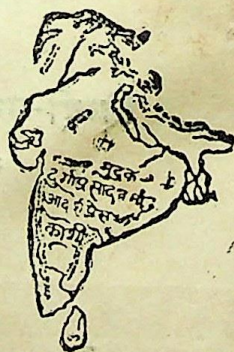 मुद्रक
दुर्गाप्रसाद वर्मा
आदर्श प्रेस
काशी